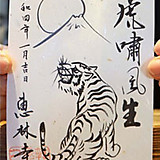 虎嘯風生
令和四年一月吉日
恵林寺